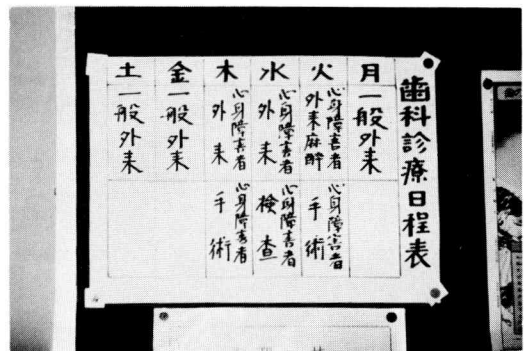 歯科診療日程表
月
一般外来
火
心身障害者
外来麻酔
心身障害者
手術
水
心身障害者
外来
心身障害者
検査
木
心身障害者
外来
心身障害者
手術
金
一般外来
土
一般外来